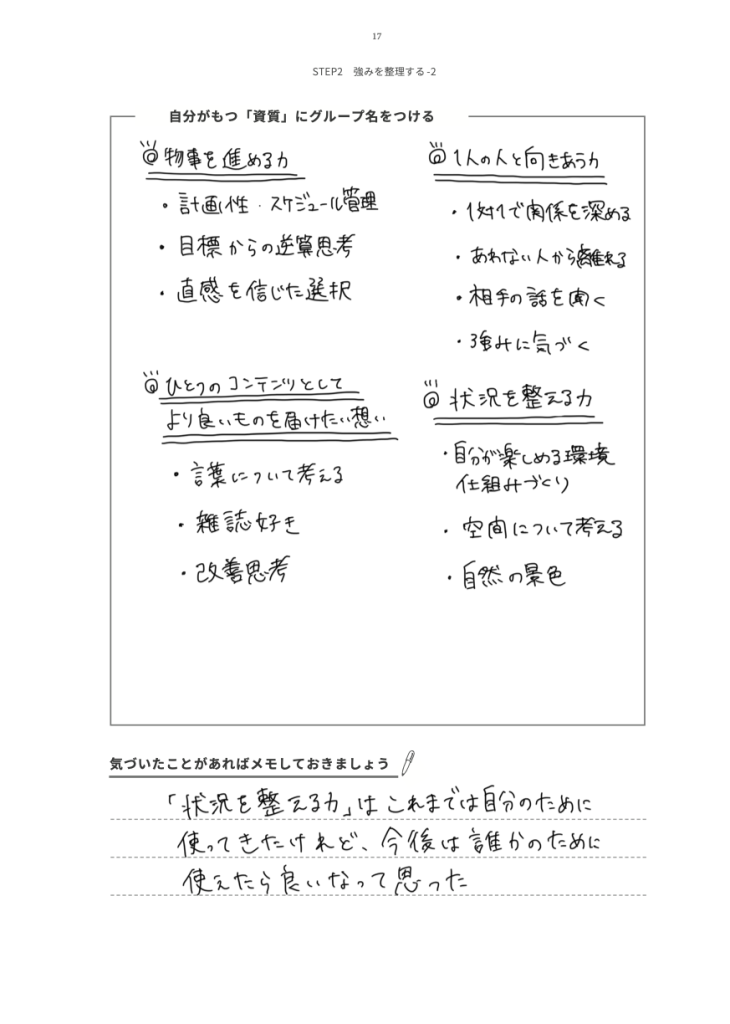 17
STEP2 強みを整理する -2
自分がもつ「資質」にグループ名をつける
物事を進める力
・計画性・スケジュール管理
・目標からの逆算思考
・直感を信じた選択
1人の人と向きあう力
・1対1で関係を深める
・あわない人から離れる
・相手の話を聞く
・強みに気づく
ひとつのコンテンツとして
より良いものを届けたい想い
・言葉について考える
・雑誌好き
・改善思考
状況を整える力
・自分が楽しめる環境
仕組みづくり
・空間について考える
・自然の景色
気づいたことがあればメモしておきましょう
「状況を整える力」はこれまでは自分のために
使ってきたけれど、今後は誰かのために
使えたら良いなって思った